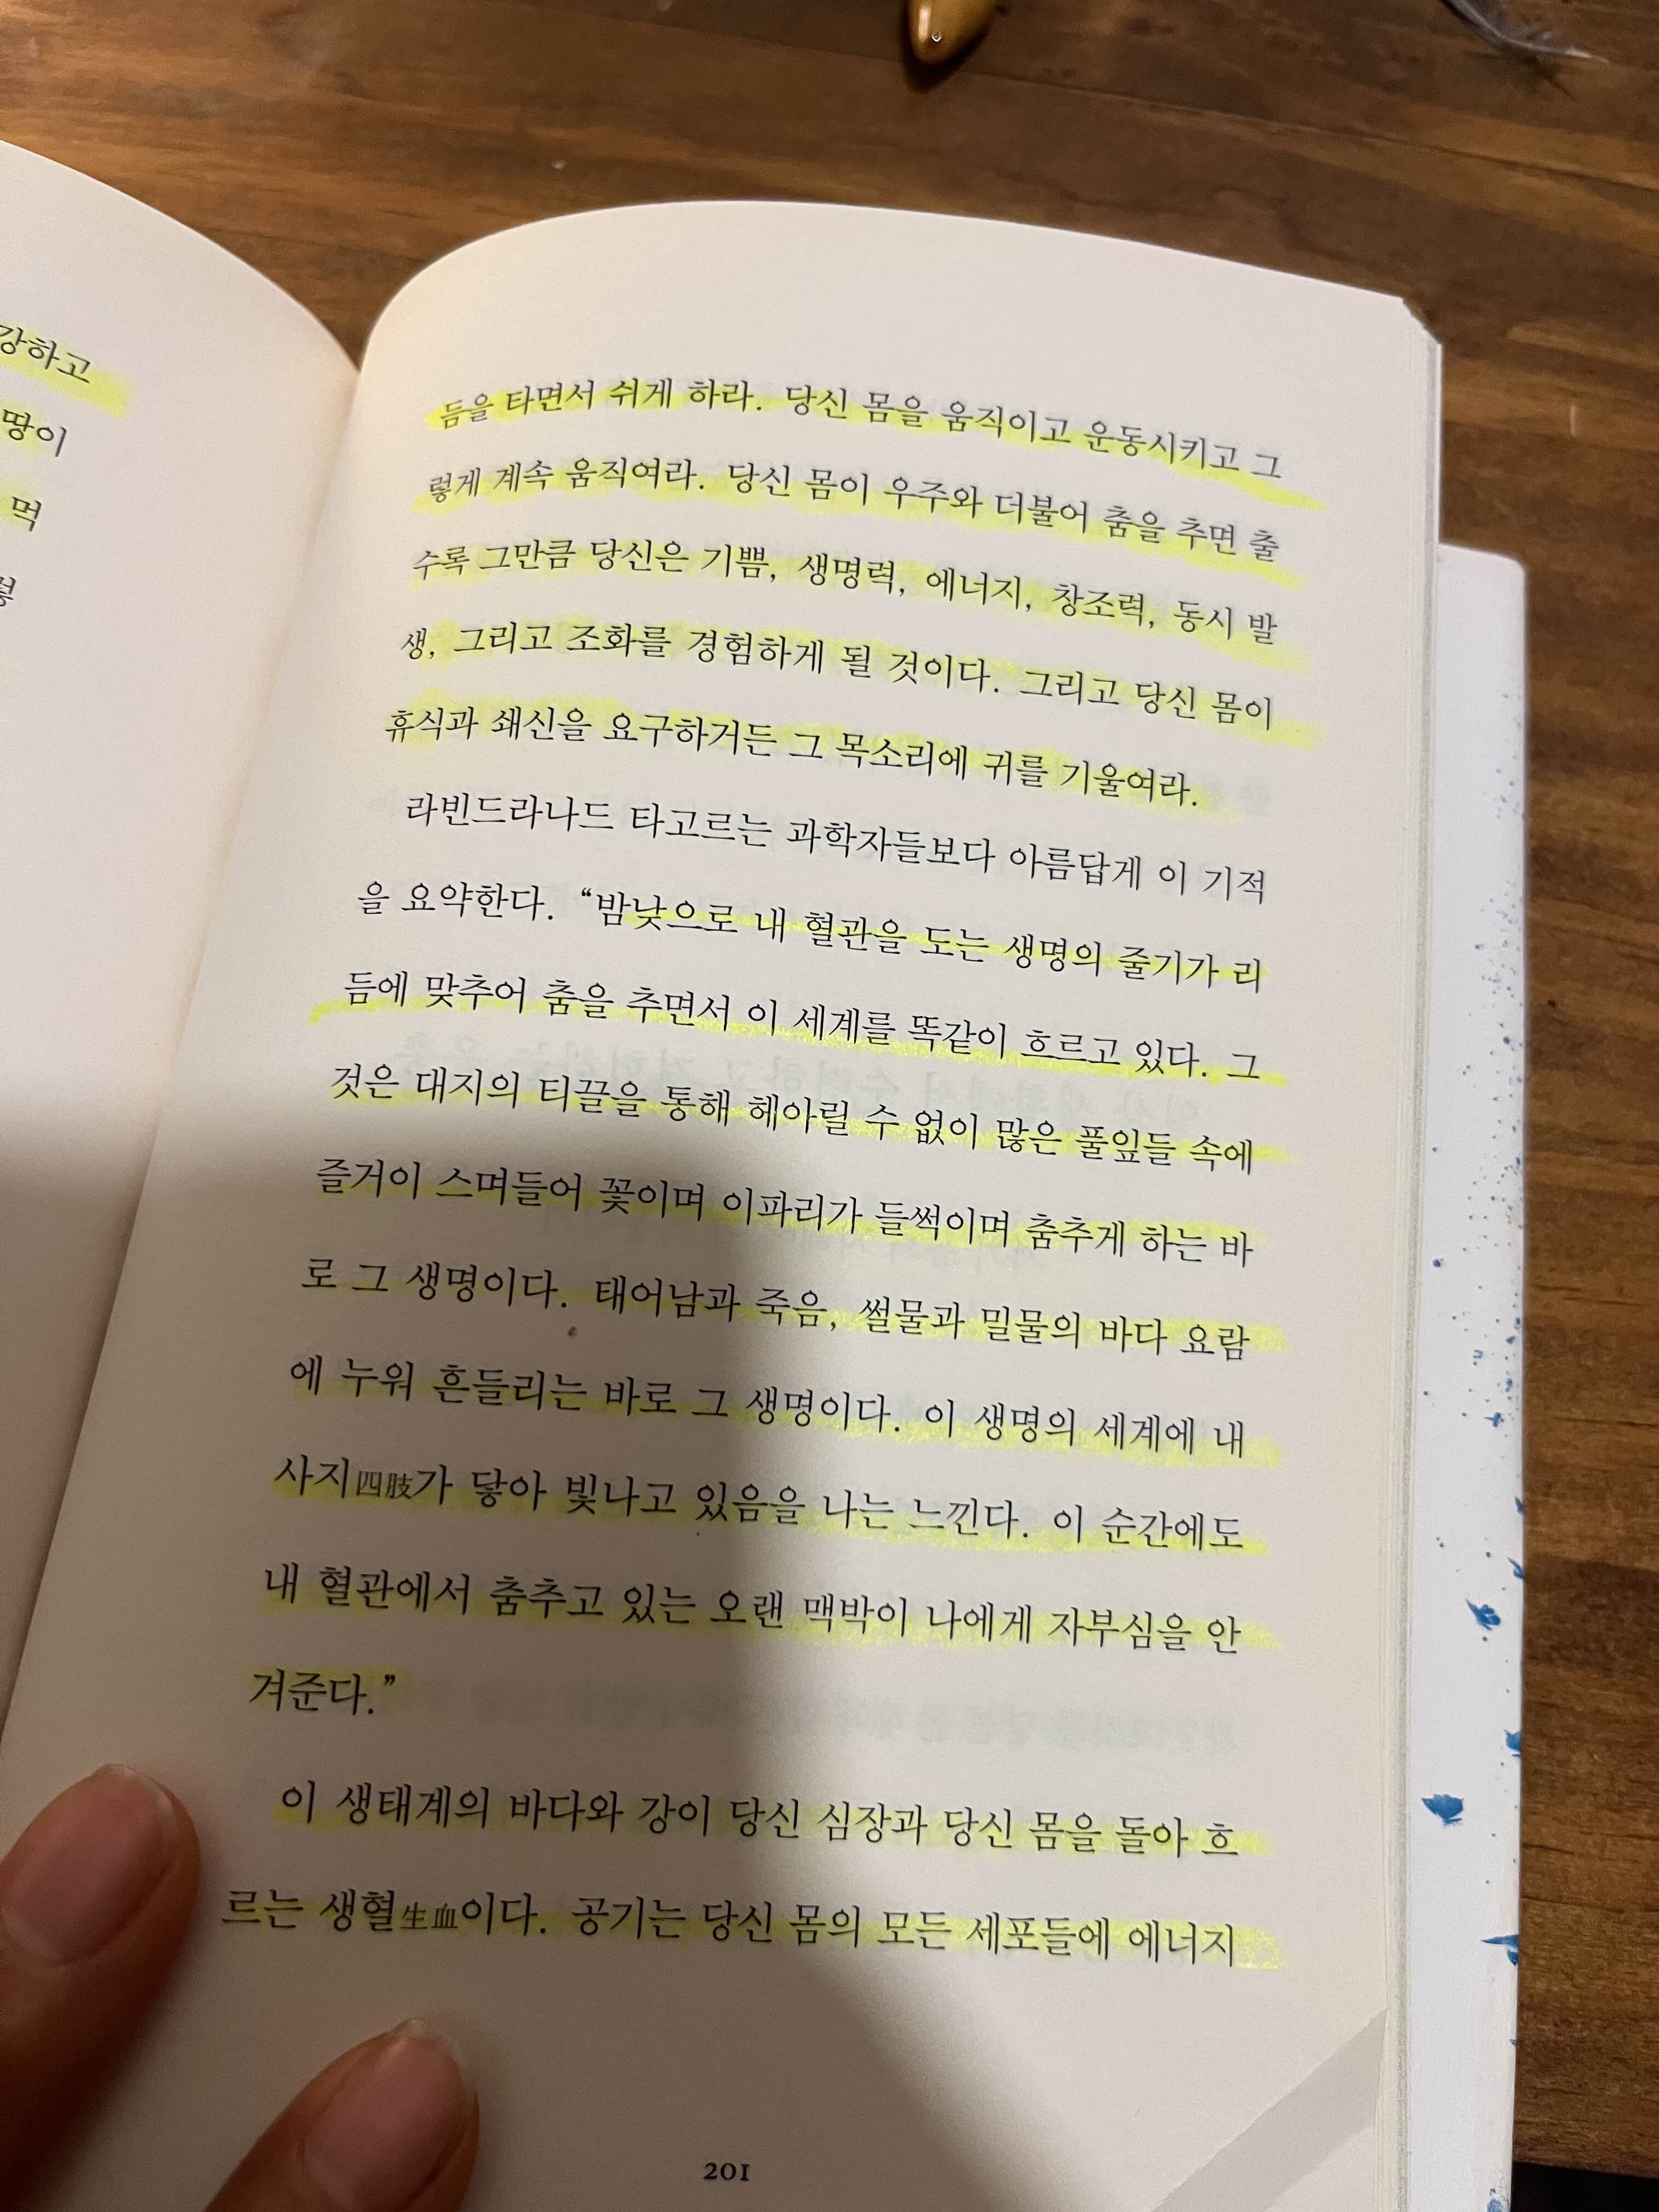 강하고
땅이
먹
듬을 타면서 쉬게 하라. 당신 몸을 움직이고 운동시키고 그
렇게 계속 움직여라. 당신 몸이 우주와 더불어 춤을 추면 출
수록 그만큼 당신은 기쁨, 생명력, 에너지, 창조력, 동시 발
생, 그리고 조화를 경험하게 될 것이다. 그리고 당신 몸이
휴식과 쇄신을 요구하거든 그 목소리에 귀를 기울여라.
라빈드라나드 타고르는 과학자들보다 아름답게 이 기적
을 요약한다. “밤낮으로 내 혈관을 도는 생명의 줄기가 리
듬에 맞추어 춤을 추면서 이 세계를 똑같이 흐르고 있다. 그
것은 대지의 티끌을 통해 헤아릴 수 없이 많은 풀잎들 속에
즐거이 스며들어 꽃이며 이파리가 들썩이며 춤추게 하는 바
로 그 생명이다. 태어남과 죽음, 썰물과 밀물의 바다 요람
에 누워 흔들리는 바로 그 생명이다. 이 생명의 세계에 내
사지四肢가 닿아 빛나고 있음을 나는 느낀다. 이 순간에도
내 혈관에서 춤추고 있는 오랜 맥박이 나에게 자부심을 안
겨준다.”
이 생태계의 바다와 강이 당신 심장과 당신 몸을 돌아 흐
르는 생혈生血이다. 공기는 당신 몸의 모든 세포들에 에너지
201